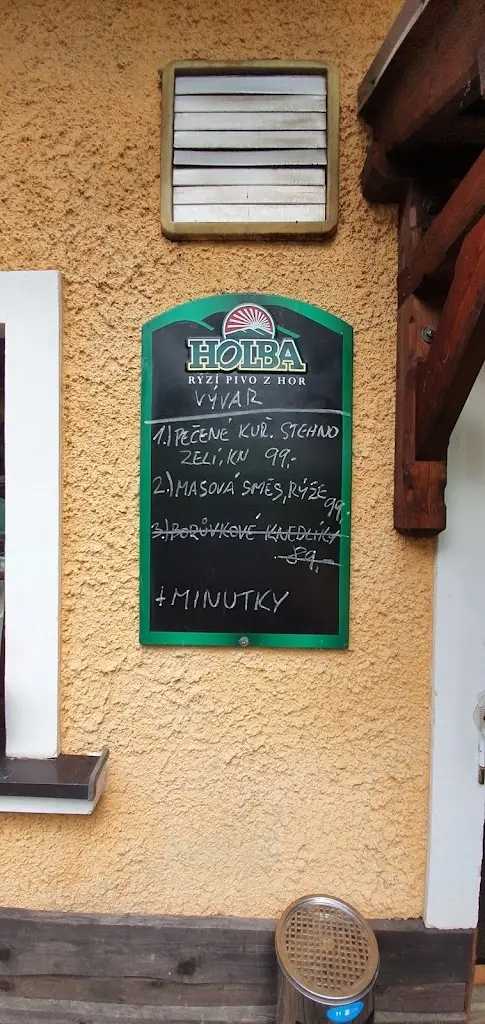 HOLBA
RYZÍ PIVO Z HOR
VÝVAR
1.) PEČENÉ KUŘ. STEHNO
ZELÍ, KN 99,-
2.) MASOVÁ SMĚS, RÝŽE
99,-
3.) BORŮVKOVÉ KNEDLÍKY
89,-
+ MINUTKY